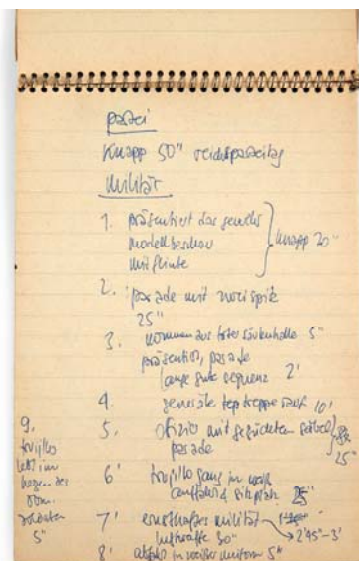 partei
Knapp 50" reichsparteitag
Militär
1. präsentiert das gewehr
modellbeschau
mit flinte
knapp 20"
2. parade mit
25"
3. kommen aus säulenhalle 5"
präsentiert, parade
lange gute sequenz 2'
4. generäle treppe rauf 10'
5. mit gezücktem säbel
parade
25"
6' trujillo ganz in weiß
25"
7' ernsthaftes militär
luftwaffe 30"
2'45"-3'
8' weißer uniform 5"
9.
trujillo
5"